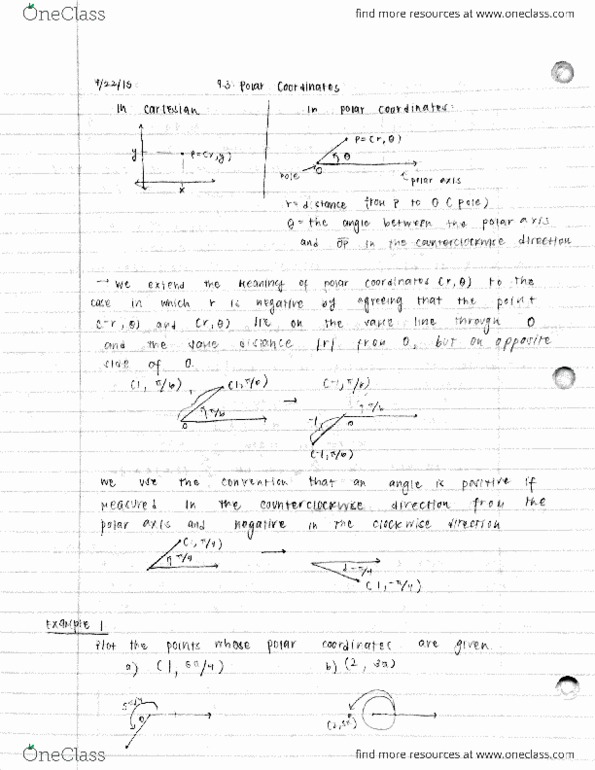 OneClass
find more resources at www.oneclass.com
9/22/15
9.3 Polar Coordinates
In Cartesian
In polar coordinates:
y
P=(x,y)
x
P=(r, θ)
θ
O
pole
polar axis
r = distance from P to O (pole)
θ = the angle between the polar axis
and OP in the counterclockwise direction
→ We extend the meaning of polar coordinates (r, θ) to the
case in which r is negative by agreeing that the point
(-r, θ) and (r, θ) lie on the same line through O
and the same distance |r| from O, but on opposite
side of O.
(1, π/6)
(1, π/6)
π/6
O
→
(-1, π/6)
π/6
-1
O
(-1, π/6)
We use the convention that an angle is positive if
measured in the counterclockwise direction from the
polar axis and negative in the clockwise direction
(1, π/4)
π/4
→
-π/4
(1, -π/4)
Example 1
Plot the points whose polar coordinates are given.
a) (1, 5π/4)
b) (2, 3π)
5π/4
O
(2, 3π)
OneClass
find more resources at www.oneclass.com